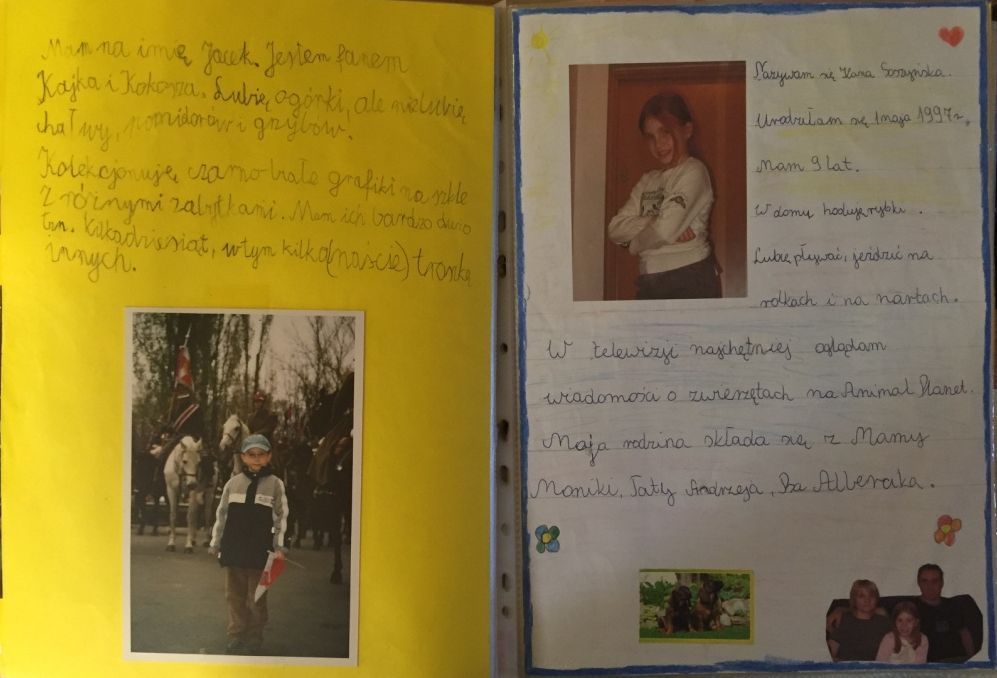 Mam na imię Jacek. Jestem fanem
Kajka i Kokosza. Lubię ogórki, ale nie lubię
chałwy, pomidorów i grzybów.
Kolekcjonuję czarno-białe grafiki na szkle
z różnymi zabytkami. Mam ich bardzo dużo
tzn. kilkadziesiąt, w tym kilka(naście) troszkę
innych.
Nazywam się Hana
Urodziłam się 1 maja 1997r.
Mam 9 lat.
W domu hoduję rybki.
Lubię pływać, jeździć na
rolkach i na nartach.
W telewizji najchętniej oglądam
wiadomości o zwierzętach na Animal Planet.
Moja rodzina składa się z Mamy
Moniki, Taty Andrzeja, Psa